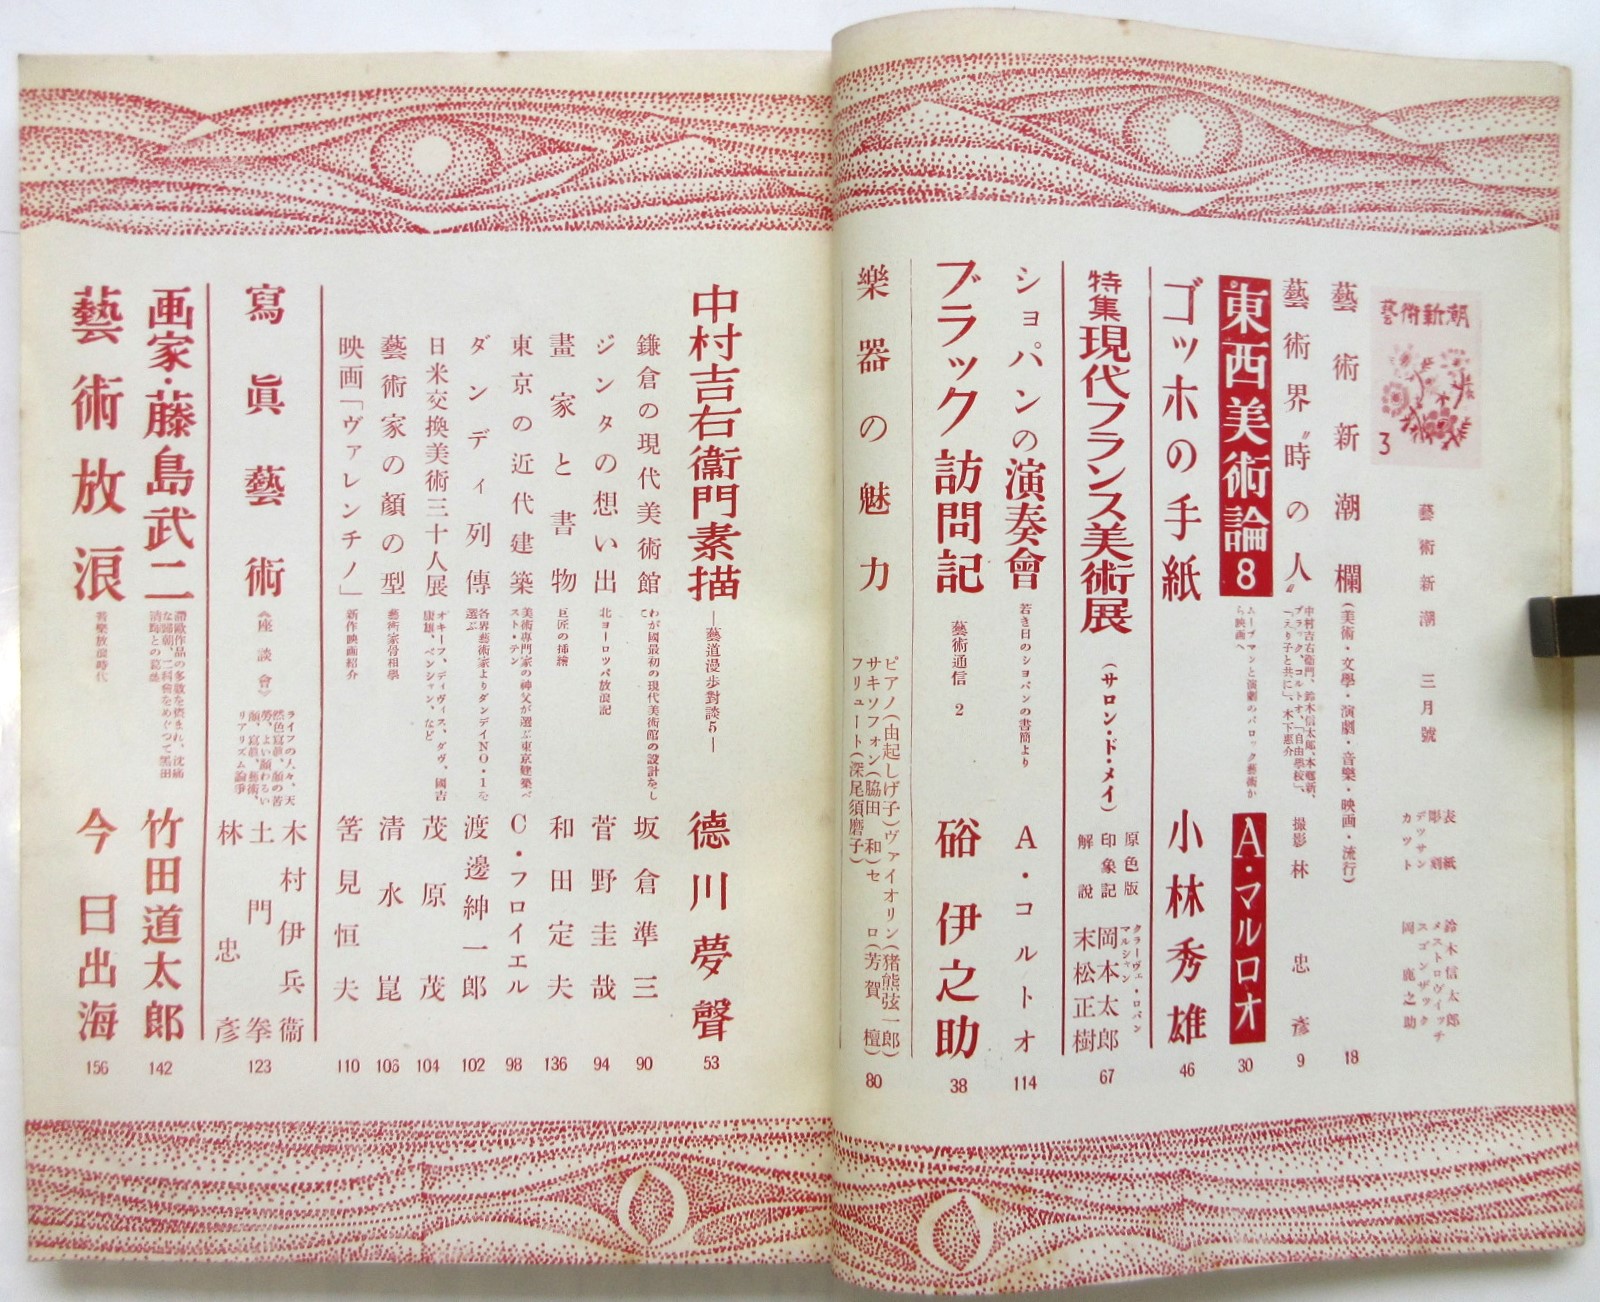 藝術新潮
3
藝術新潮 三月號
表紙 鈴木信太郎
彫刻 メストロヴィッチ
デッサン スゴンザック
カット 岡鹿之助
藝術新潮欄(美術・文學・演劇・音樂・映画・流行) 18
藝術界〝時の人〟
中村吉右衞門、鈴木信太郎、本郷新、
ブラック、コルトオ、「自由學校」、
「えり子と共に」、木下惠介
撮影 林忠彥 9
東西美術論8
ムーブマンと演劇のバロック藝術か
ら映画へ
A・マルロオ 30
ゴッホの手紙 小林秀雄 46
特集 現代フランス美術展(サロン・ド・メイ)
原色版 クラーヴェ・ロバン
マルシャン
印象記 岡本太郎
解說 末松正樹
67
ショパンの演奏會 若き日のショパンの書簡より A・コルトオ 114
ブラック訪問記 藝術通信 2 硲伊之助 38
樂器の魅力
ピアノ(由起しげ子)ヴァイオリン(猪熊弦一郎)
サキソフォン(脇田 和)セロ(芳賀 檀)
フリュート(深尾須磨子)
80
中村吉右衞門素描 ―藝道漫步對談5― 德川夢聲 53
鎌倉の現代美術館
わが國最初の現代美術館の設計をし
て
坂倉準三 90
ジンタの想い出 北ヨーロッパ放浪記 菅野圭哉 94
畫家と書物 巨匠の挿繪 和田定夫 136
東京の近代建築
美術専門家の神父が選ぶ東京建築ベ
スト・テン
C・フロイエル 98
ダンディ列傳
各界藝術家よりダンデイNO・1を
選ぶ
渡邊紳一郎 102
日米交換美術三十人展
オキーフ、ディヴィス、ダヴ、國吉
康雄、ベンシャン、など
茂原茂 104
藝術家の顏の型 藝術家骨相學 清水崑 106
映画「ヴァレンチノ」 新作映画紹介 筈見恒夫 110
寫眞藝術《座談會》
ライフの人々、天
然色寫眞、顏の苦
勞、よい顏わるい
顏、寫眞、藝術、
リアリズム論爭
木村伊兵衞
土門拳
林忠彥
123
画家・藤島武二
滯歐作品の多數を盜まれ、沈痛
な歸朝、二科會をめぐつて黑田
清輝との葛藤
竹田道太郎 142
藝術放浪 音樂放浪時代 今日出海 156